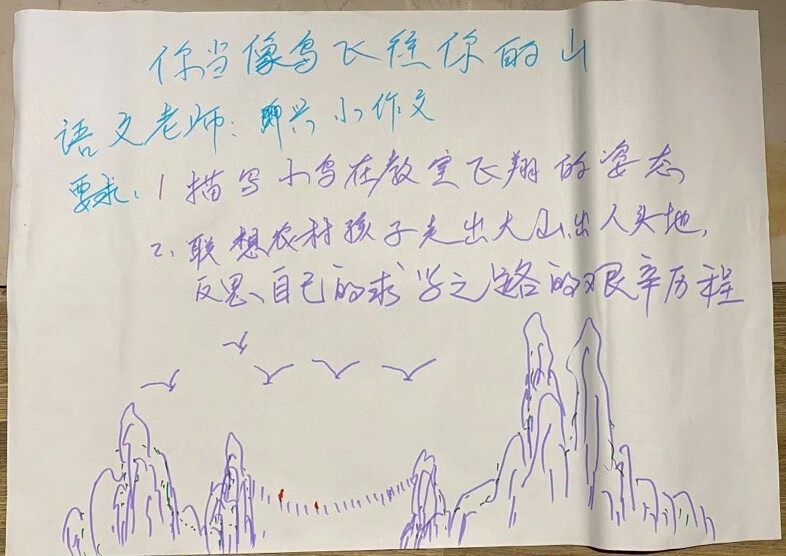 你当像鸟飞往你的山
语文老师：即兴小作文
要求：1 描写小鸟在教室飞翔的姿态
2、联想农村孩子走出大山出人头地，
反思、自己的求学之路的艰辛历程